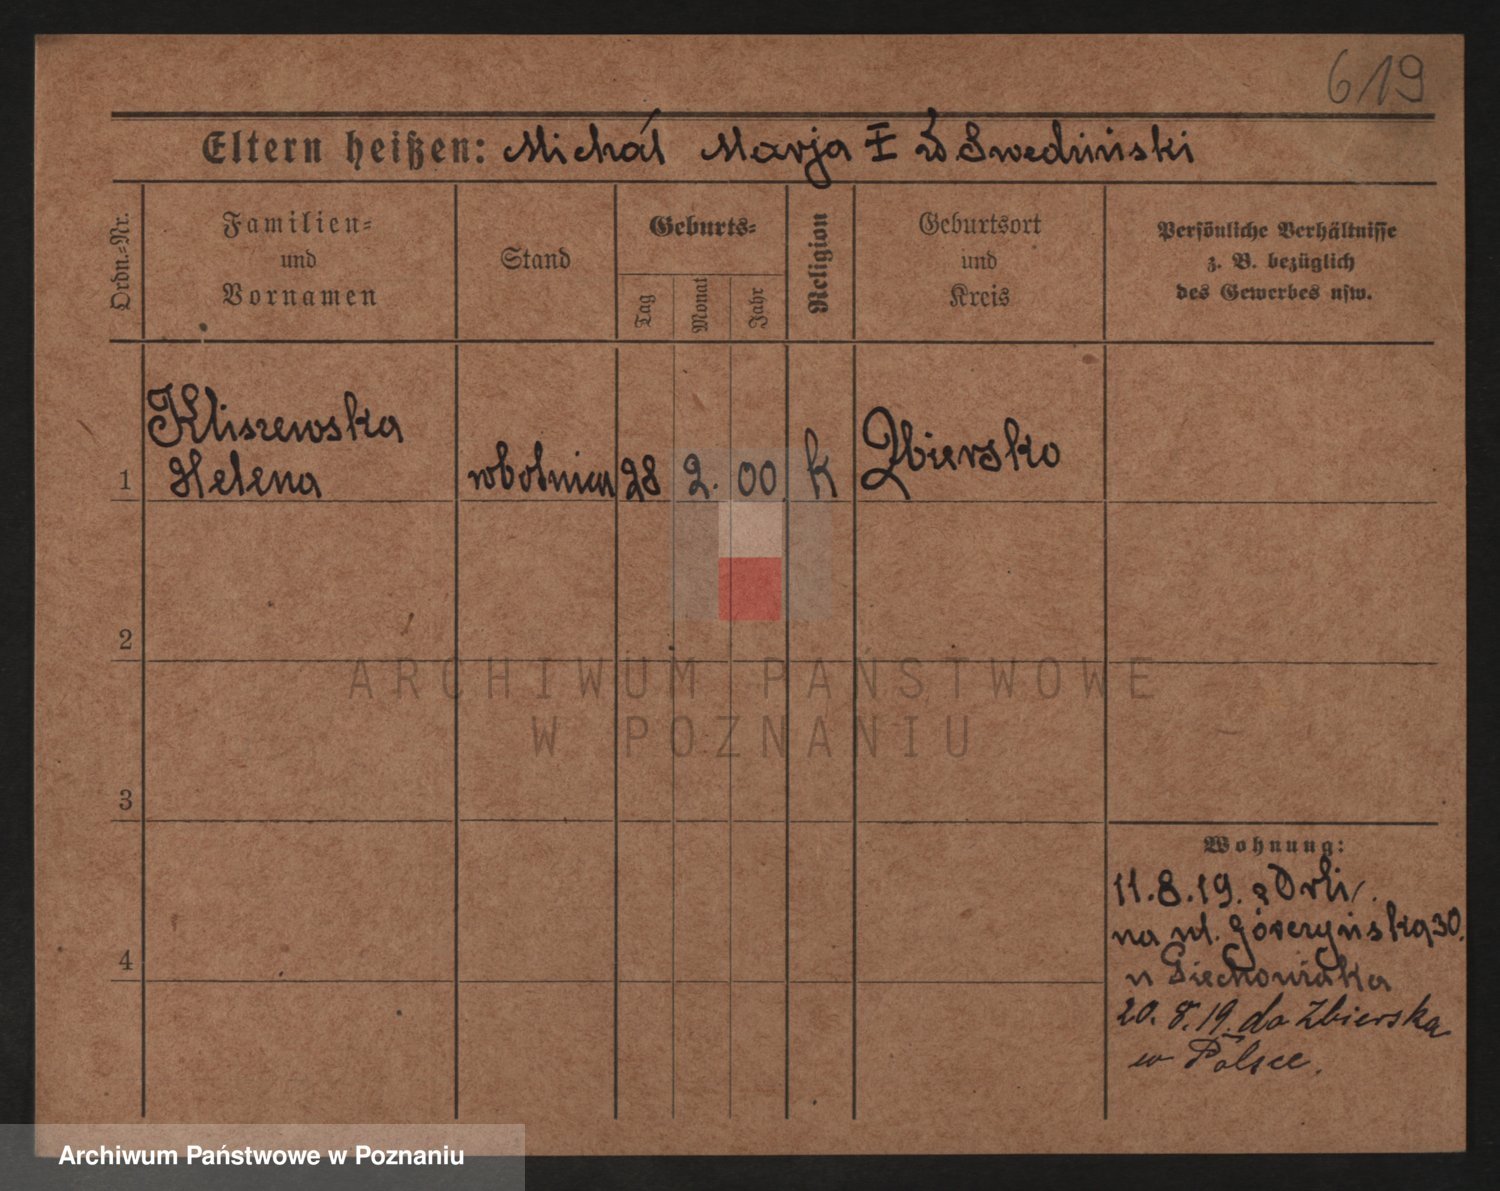 619
Eltern heißen: Michał Marja I
Ordn.-Nr.
Familien-
und
Vornamen
Stand
Geburts-
Tag
Monat
Jahr
Religion
Geburtsort
und
Kreis
Persönliche Verhältnisse
z. B. bezüglich
des Gewerbes usw.
Kliszewska
Helena
1
robotnica
28
2.
00
k
Zbiersko
2
ARCHIWUM PAŃSTWOWE
W POZNANIU
3
Wohnung:
11.8.19.
na ul. Górczyńska 30.
4
u Piechowiaka
20. 8. 19. do Zbierska
w Polsce.
Archiwum Państwowe w Poznaniu